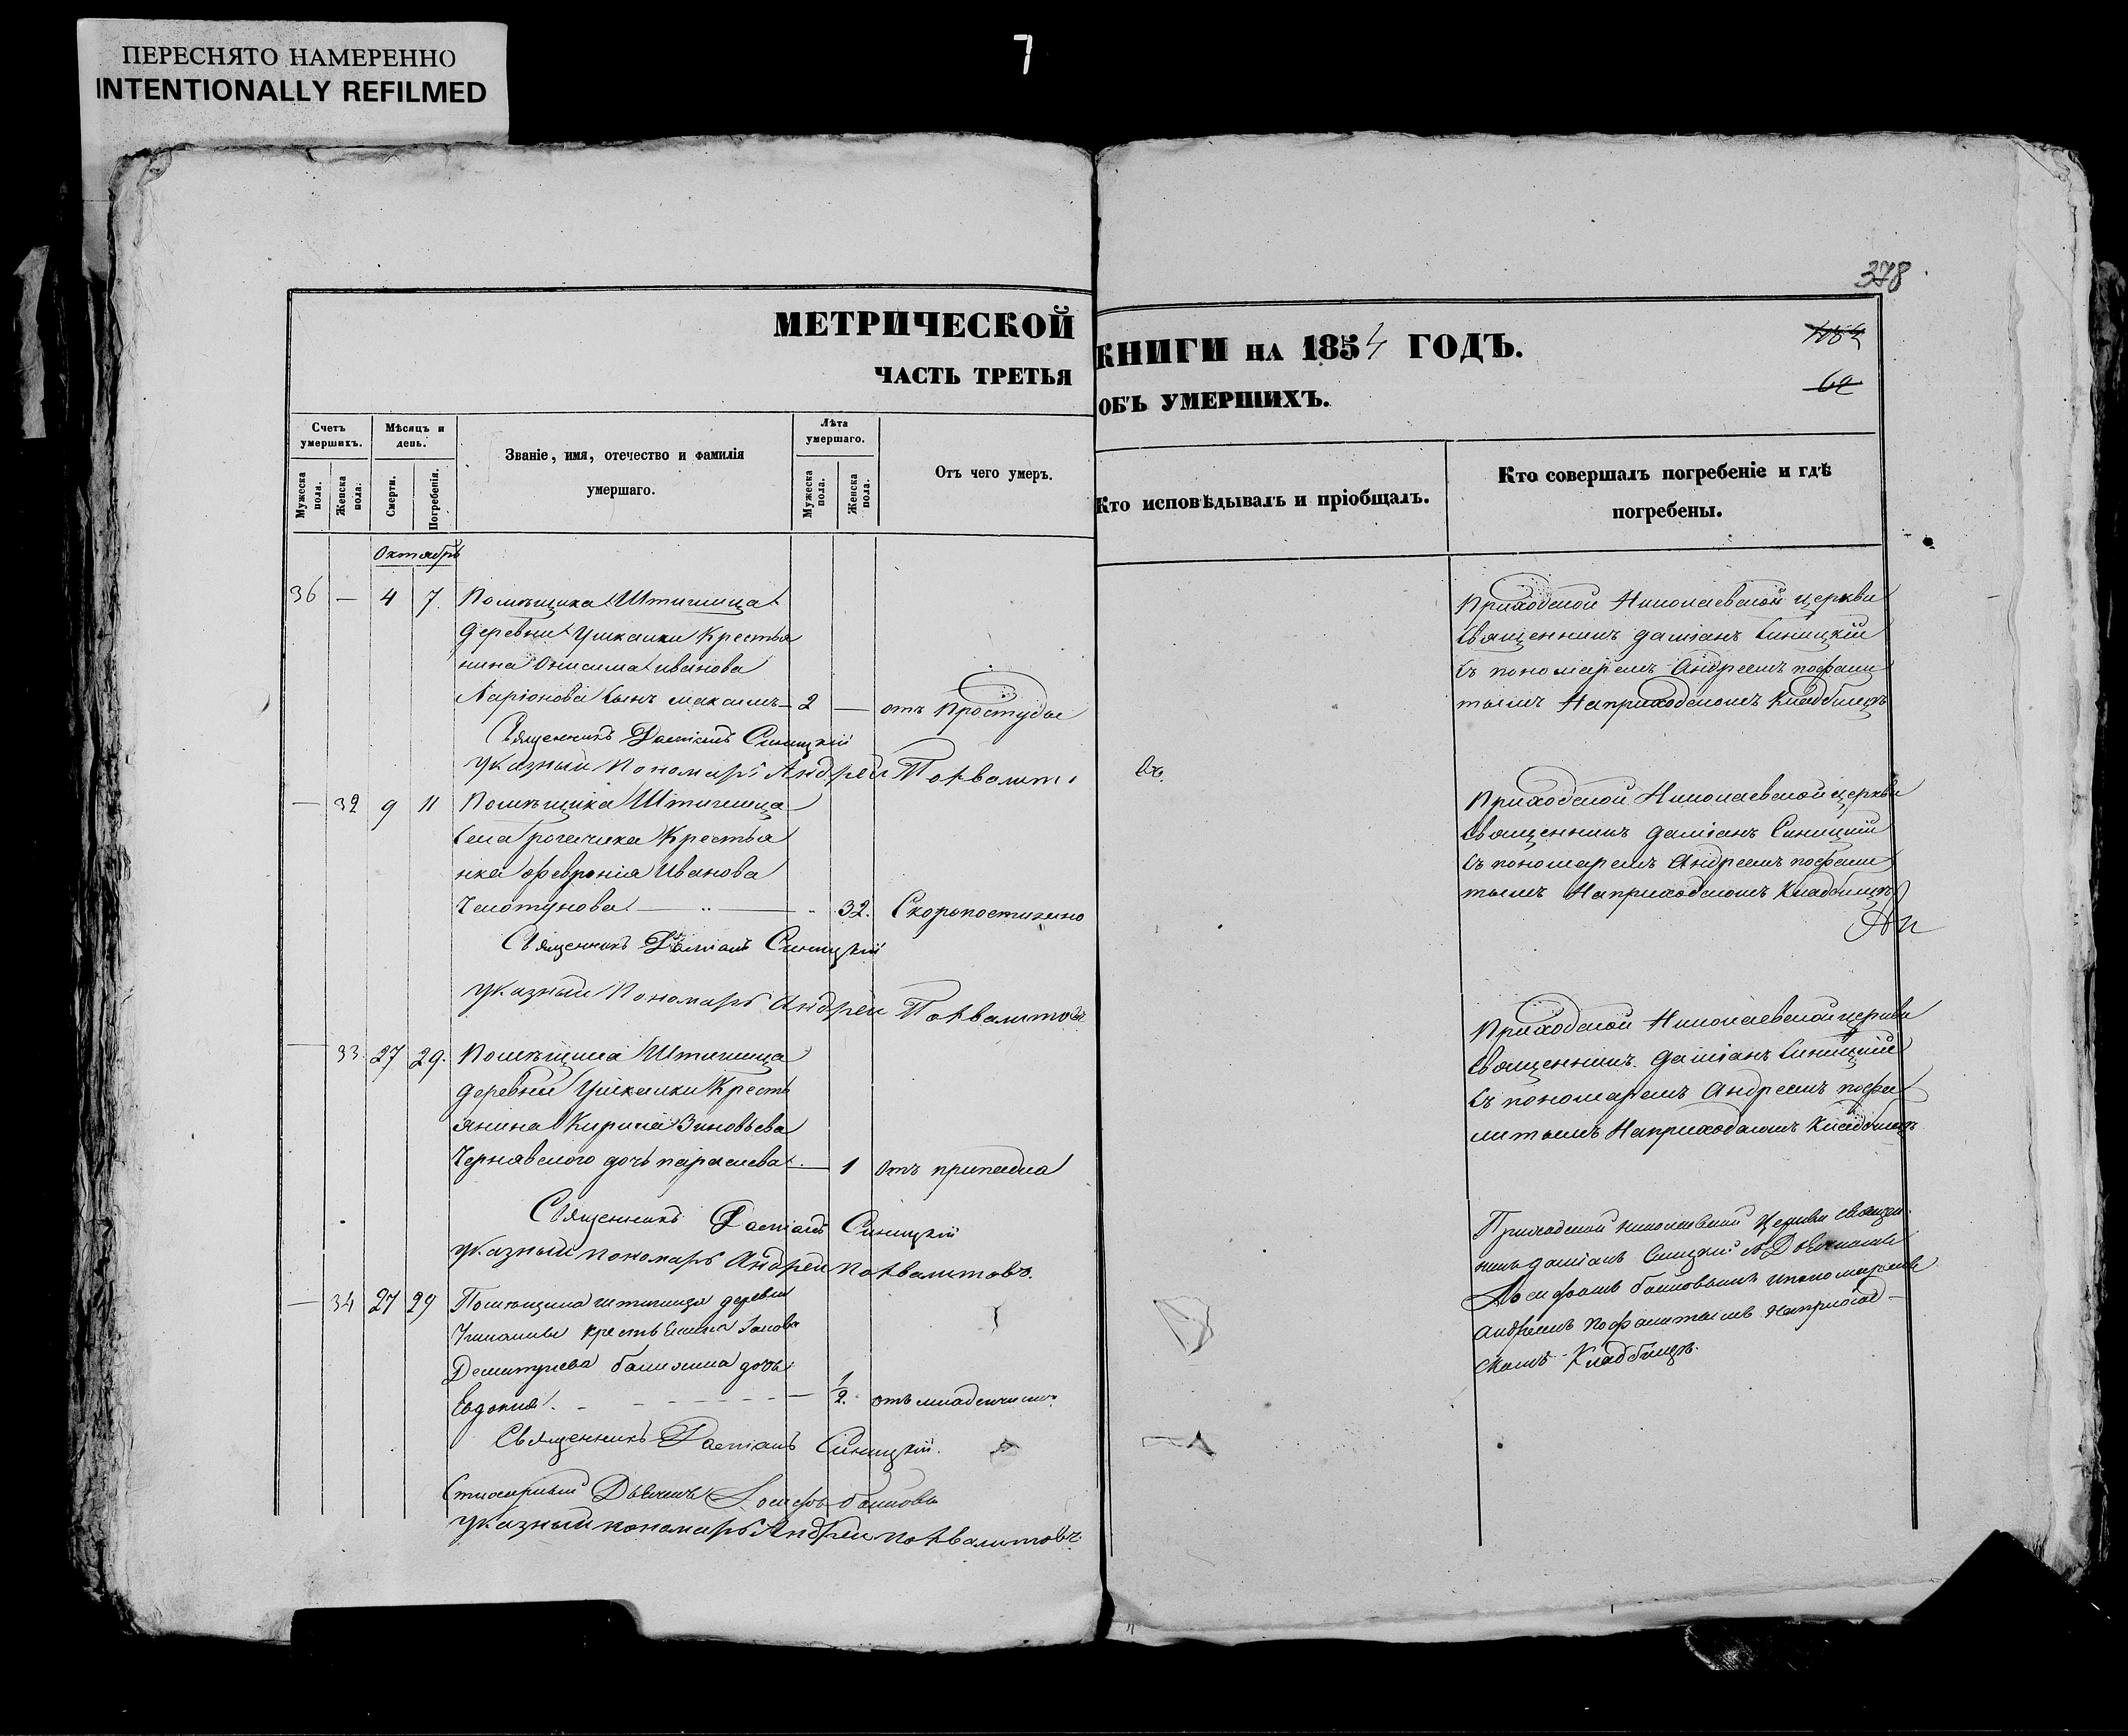 ПЕРЕСНЯТО НАМЕРЕННО
INTENTIONALLY REFILMED
7
378
МЕТРИЧЕСКОЙ КНИГИ НА 1854 ГОДЪ.
ЧАСТЬ ТРЕТЬЯ ОБЪ УМЕРШИХЪ.
62
Счетъ умершихъ.
Мужеска пола.
Женска пола.
Мѣсяцъ и день.
Смерти.
Погребенія.
Званіе, имя, отечество и фамилія
умершаго.
Лѣта умершаго.
Мужеска пола.
Женска пола.
Отъ чего умеръ.
Кто исповѣдывалъ и пріобщалъ.
Кто совершалъ погребеніе и гдѣ
погребены.
Октябрь
36 — 4 7. Помѣщика Штиглица
деревни Ушкалки Крестья
нина Онисима иванова
Ларіонова сынъ максимъ — 2 — отъ Простуды
Священникъ Даміанъ Синицкій
указный Пономарь Андрей
Приходской Николаевской церкви
Священникъ даміанъ Синицкій
съ пономаремъ Андреемъ
На приходскомъ Кладбищѣ
— 32 9 11 Помѣщика Штиглица
села Рогачика Крестья
нка февронія Иванова
— 32. Скоропостижно
Священникъ Даміанъ Синицкій
указный Пономарь Андрей Похвалитовъ
Приходской Николаевской церкви
Священникъ даміанъ Синицкій
съ пономаремъ Андреемъ
На приходскомъ Кладбищѣ
— 33. 27 29. Помѣщика Штиглица
деревни Ушкалки Кресть
янина Кирила Зиновьева
Чернявского дочь параскева — 1 Отъ припадка
Священникъ Даміанъ Синицкій
указный пономарь Андрей похвалитовъ.
Приходской Николаевской церкви
Священникъ даміанъ Синицкій
съ пономаремъ Андреемъ пофа
литымъ На приходскомъ Кладбищѣ
— 34 27 29 Помѣщика штиглица деревни
Ушкалки крестьянина
Дмитриева дочь
Евдокия. — 1/2. отъ младенческой
Священникъ Даміанъ Синицкій.
Дьяконъ
указный пономарь Андрей похвалитовъ.
Приходской николаевской Церкви священ
никъ даміанъ Синицкій съ Дьякономъ
и пономаремъ
Андреемъ пофалитымъ на приход
скомъ Кладбищѣ.